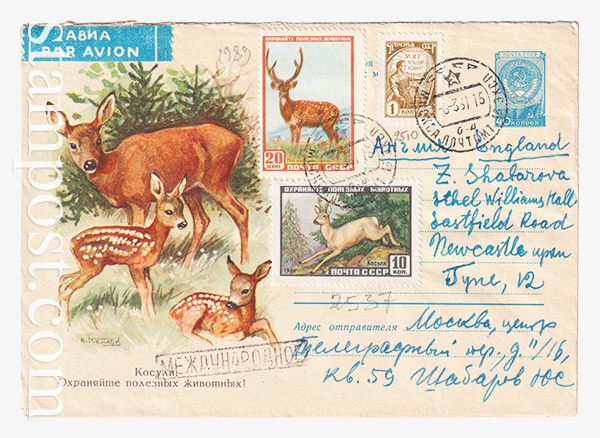 АВИА
PAR AVION
(1989)
ОХРАНЯЙТЕ ПОЛЕЗНЫХ ЖИВОТНЫХ
20 КОП
ПОЧТА СССР
ПОЧТА СССР
МИР
1 КОП
2510
ПОЧТА СССР
КОПЕЕК
МОСКВА ПОЧТАМТ
СССР
Англия England
Z. Shabarova
Ethel Williams Hall
Eastfield Road
Newcastle upon
Tyne, 12
ОХРАНЯЙТЕ ПОЛЕЗНЫХ ЖИВОТНЫХ
Косули
1960 ПОЧТА СССР 10 КОП.
2537
Адрес отправителя Москва, центр
Телеграфный пер., д. 11/16,
кв. 59 Шабаров Юс
МЕЖДУНАРОДНОЕ
Косули.
Охраняйте полезных животных!
stampost.com
Stampost.com